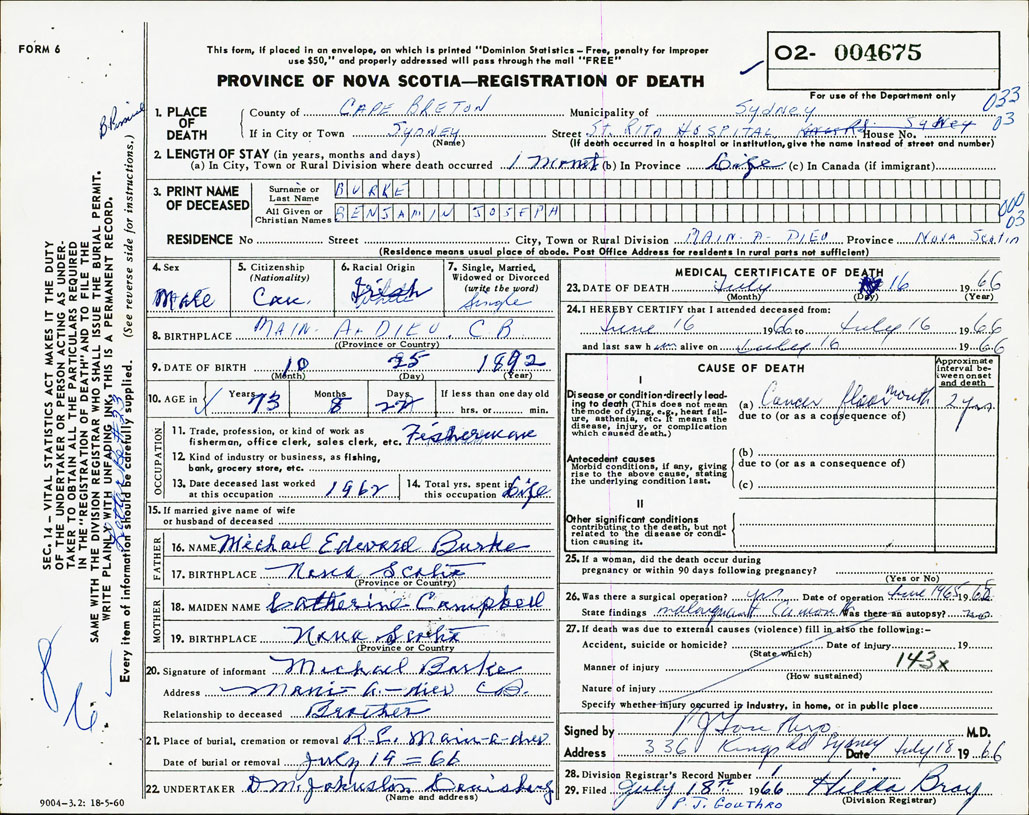 FORM 6
This form, if placed in an envelope, on which is printed "Dominion Statistics – Free, penalty for improper
use $50," and properly addressed will pass through the mail "FREE"
PROVINCE OF NOVA SCOTIA—REGISTRATION OF DEATH
02- 004675
For use of the Department only
033
03
1. PLACE OF DEATH
County of CAPE BRETON Municipality of SYDNEY
If in City or Town SYDNEY Street ST. RITA HOSPITAL House No. SYDNEY
(Name) (If death occurred in a hospital or institution, give the name instead of street and number)
2. LENGTH OF STAY (in years, months and days)
(a) In City, Town or Rural Division where death occurred 1 Month (b) In Province Life (c) In Canada (if immigrant)
3. PRINT NAME OF DECEASED
Surname or Last Name BURKE
All Given or Christian Names BENJAMIN JOSEPH
000
03
RESIDENCE No Street City, Town or Rural Division MAIN-A-DIEU Province NOVA SCOTIA
(Residence means usual place of abode. Post Office Address for residents in rural parts not sufficient)
4. Sex Male
5. Citizenship (Nationality) Can.
6. Racial Origin Irish
7. Single, Married, Widowed or Divorced (write the word) Single
8. BIRTHPLACE MAIN-A-DIEU, C B
(Province or Country)
9. DATE OF BIRTH 10 25 1892
(Month) (Day) (Year)
10. AGE in Years 73 Months 8 Days 22 If less than one day old
hrs. or min.
OCCUPATION
11. Trade, profession, or kind of work as
fisherman, office clerk, sales clerk, etc. Fisherman
12. Kind of industry or business, as fishing,
bank, grocery store, etc.
13. Date deceased last worked
at this occupation 1962
14. Total yrs. spent in
this occupation Life
15. If married give name of wife
or husband of deceased
FATHER
16. NAME Michael Edward Burke
17. BIRTHPLACE Nova Scotia
(Province or Country)
MOTHER
18. MAIDEN NAME Catherine Campbell
19. BIRTHPLACE Nova Scotia
(Province or Country
20. Signature of informant Michael Burke
Address Main-a-dieu C.B.
Relationship to deceased Brother
21. Place of burial, cremation or removal R.C. Main-a-dieu
Date of burial or removal July 19 = 66
22. UNDERTAKER D.M. Johnston Louisburg
(Name and address)
9004–3.2: 18-5-60
MEDICAL CERTIFICATE OF DEATH
23. DATE OF DEATH July 16 1966
(Month) (Day) (Year)
24. I HEREBY CERTIFY that I attended deceased from:
June 16 1966 to July 16 1966
and last saw him alive on July 16 1966
CAUSE OF DEATH
Approximate interval between onset and death
I
Disease or condition directly leading to death (This does not mean the mode of dying, e.g., heart failure, asthenia, etc. It means the disease, injury, or complication which caused death.)
(a) Cancer floor mouth 2 yrs.
due to (or as a consequence of)
Antecedent causes
Morbid conditions, if any, giving rise to the above cause, stating the underlying condition last.
(b)
due to (or as a consequence of)
(c)
II
Other significant conditions
contributing to the death, but not related to the disease or condition causing it.
25. If a woman, did the death occur during
pregnancy or within 90 days following pregnancy?
(Yes or No)
26. Was there a surgical operation? yes Date of operation June 1965 19
State findings malignant Was there an autopsy? no
27. If death was due to external causes (violence) fill in also the following:–
Accident, suicide or homicide? Date of injury 19
(State which)
Manner of injury 143x
(How sustained)
Nature of injury
Specify whether injury occurred in Industry, in home, or in public place
Signed by P J Gouthro M.D.
Address 336 Kings Rd Sydney Date July 18 1966
28. Division Registrar's Record Number 1
29. Filed July 18th 1966 Hilda Bray
P. J. GOUTHRO (Division Registrar)
SEC. 14 – VITAL STATISTICS ACT MAKES IT THE DUTY
OF THE UNDERTAKER OR PERSON ACTING AS UNDER-
TAKER TO OBTAIN ALL THE PARTICULARS REQUIRED
IN THE "REGISTRATION OF DEATH" AND TO FILE THE
SAME WITH THE DIVISION REGISTRAR WHO SHALL ISSUE THE BURIAL PERMIT.
WRITE PLAINLY WITH UNFADING INK. THIS IS A PERMANENT RECORD.
Every item of information should be carefully supplied. (See reverse side for instructions.)